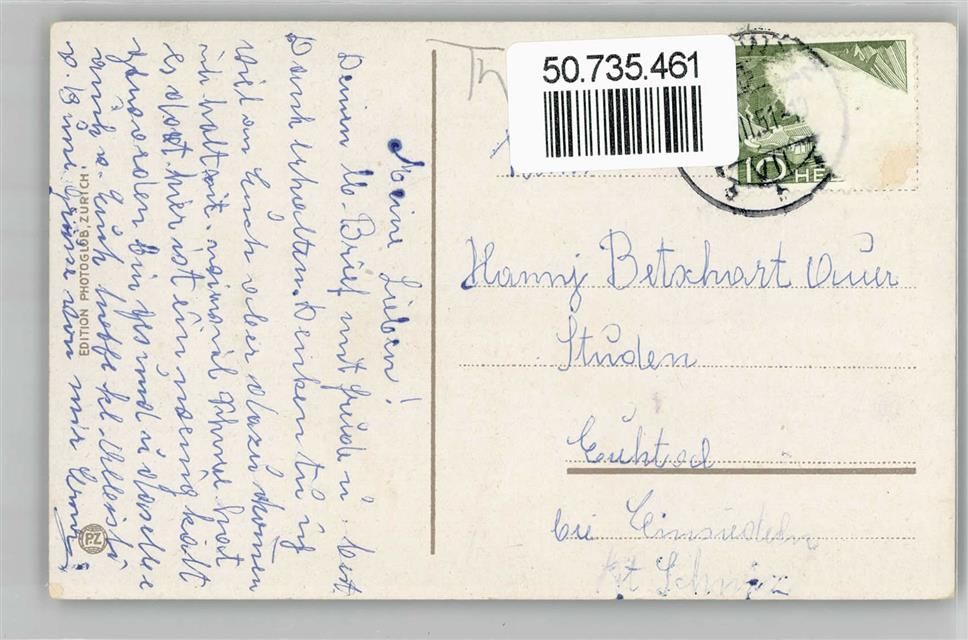 50.735.461
10 HE
Meine Lieben!
Deinen lb. Brief mit Freude u. best.
Dank erhalten. Denken tu ich
viel an Euch aber dazu kommen
ich halt nit.
es hat. hier ist ein wenig kalt
geworden bin gesund u dasselbe
auch v. Euch hoffe
von mir
EDITION PHOTOGLOB, ZÜRICH
PZ
Hanny Betschart Auer
Studen
Euthal
bei Einsiedeln
Kt Schwiz